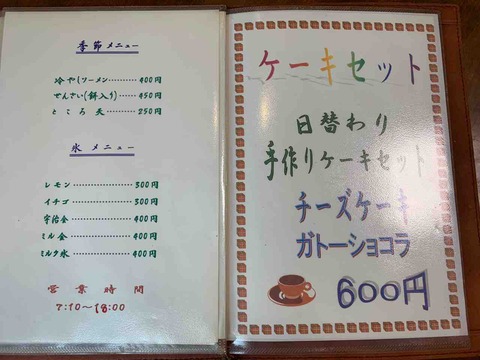 季節メニュー
冷やしソーメン………400円
ぜんざい(餅入り)……450円
ところ天…………250円
氷メニュー
レモン………………300円
イチゴ………………300円
宇治金………………400円
ミル金………………400円
ミルク氷………………400円
営業時間
7:10～18:00
ケーキセット
日替わり
手作りケーキセット
チーズケーキ
ガトーショコラ
600円